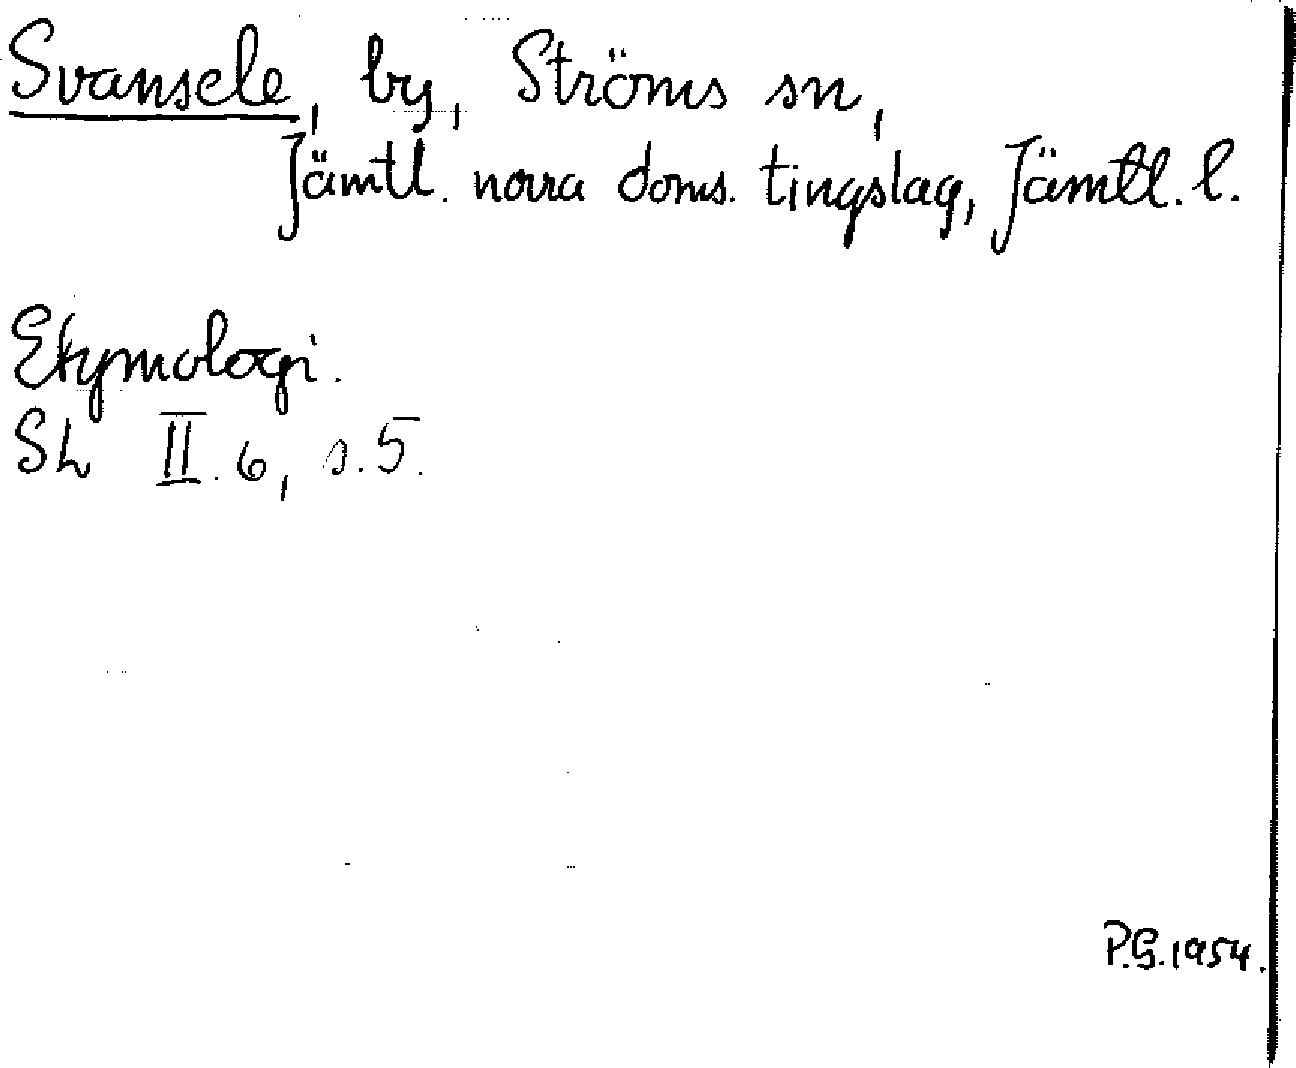 Svansele, by, Ströms sn,
Jämtl. norra doms. tingslag, Jämtl. l.
Etymologi.
Sh II. 6, s. 5.
P.G. 1954.